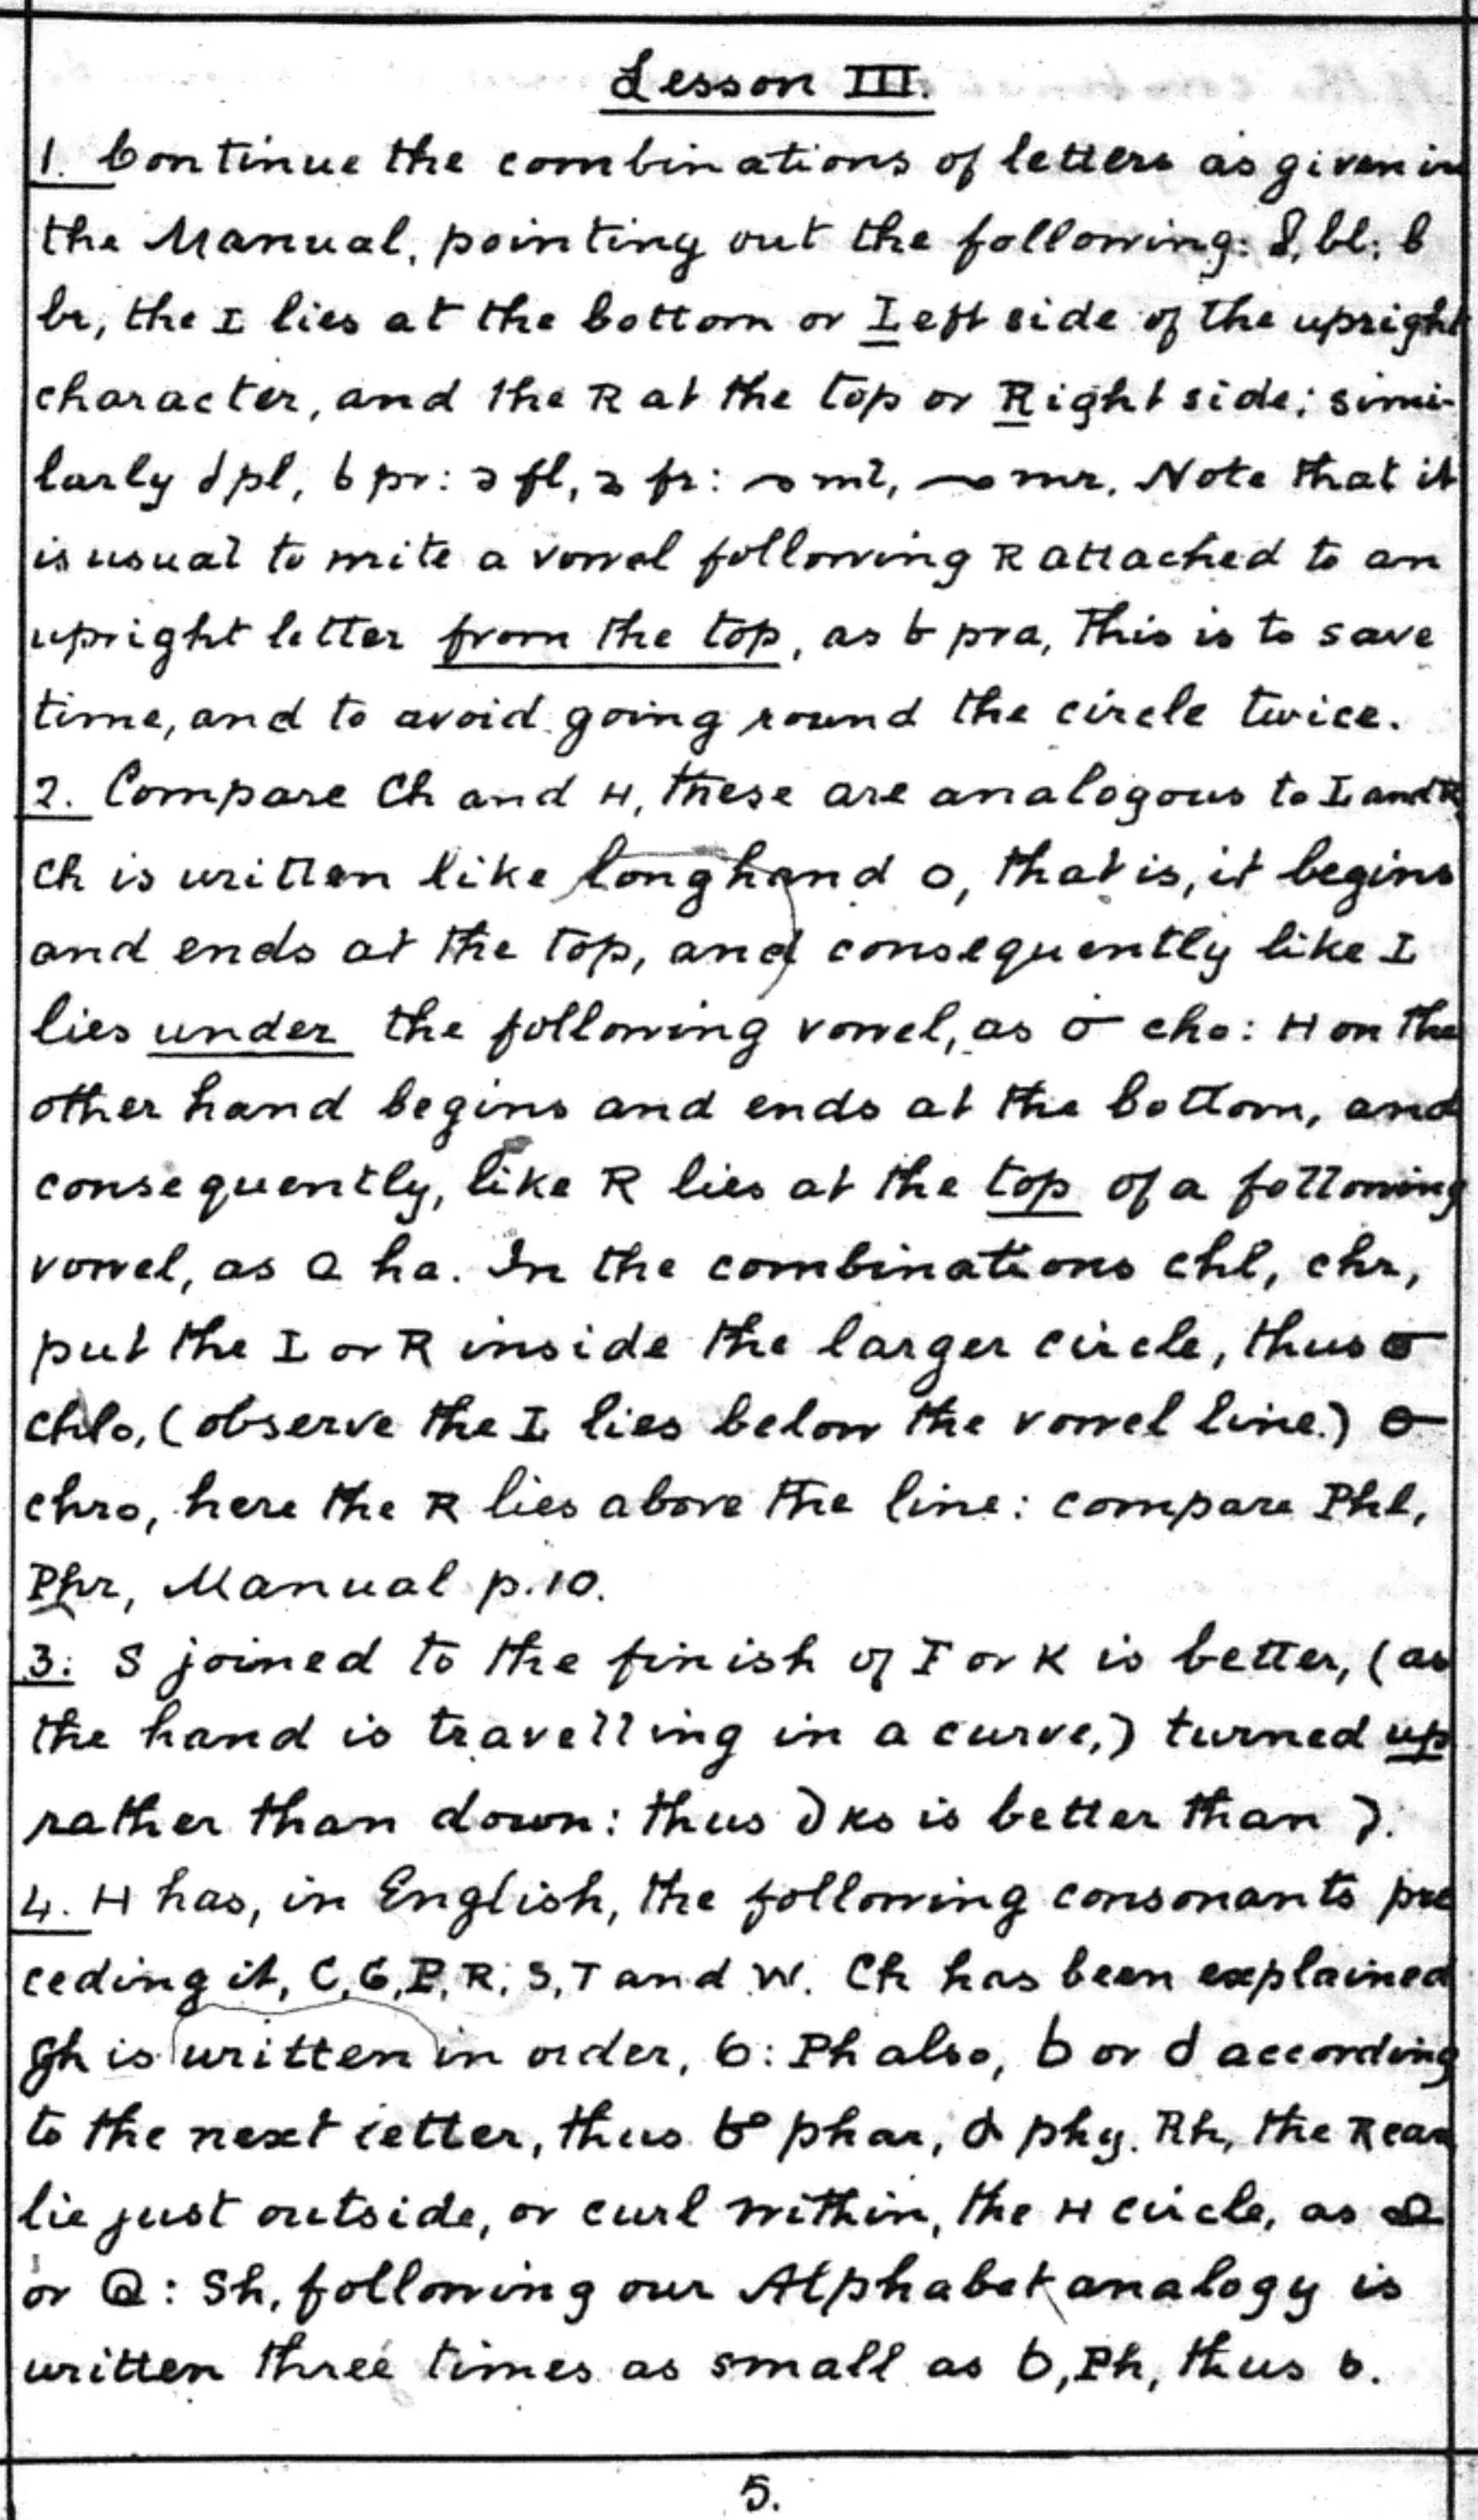 Lesson III.
1. Continue the combinations of letters as given in
the Manual, pointing out the following: bl: b
br, the L lies at the bottom or Left side of the upright
character, and the R at the top or Right side; simi-
larly pl, pr: fl, fr: ml, mr. Note that it
is usual to write a vowel following R attached to an
upright letter from the top, as pra, This is to save
time, and to avoid going round the circle twice.
2. Compare Ch and H, these are analogous to L and R,
Ch is written like longhand o, that is, it begins
and ends at the top, and consequently like L
lies under the following vowel, as cho: H on the
other hand begins and ends at the bottom, and
consequently, like R lies at the top of a following
vowel, as ha. In the combinations chl, chr,
put the L or R inside the larger circle, thus
chlo, (observe the L lies below the vowel line.)
chro, here the R lies above the line: compare Phl,
Phr, Manual p.10.
3. S joined to the finish of T or K is better, (as
the hand is travelling in a curve,) turned up
rather than down: thus ks is better than
4. H has, in English, the following consonants pre
ceding it, C, G, P, R, S, T and W. Ch has been explained
Gh is written in order, : Ph also, or according
to the next letter, thus phar, phy. Rh, the R can
lie just outside, or curl within, the H circle, as
or : Sh, following our Alphabet analogy is
written three times as small as , Ph, thus
5.